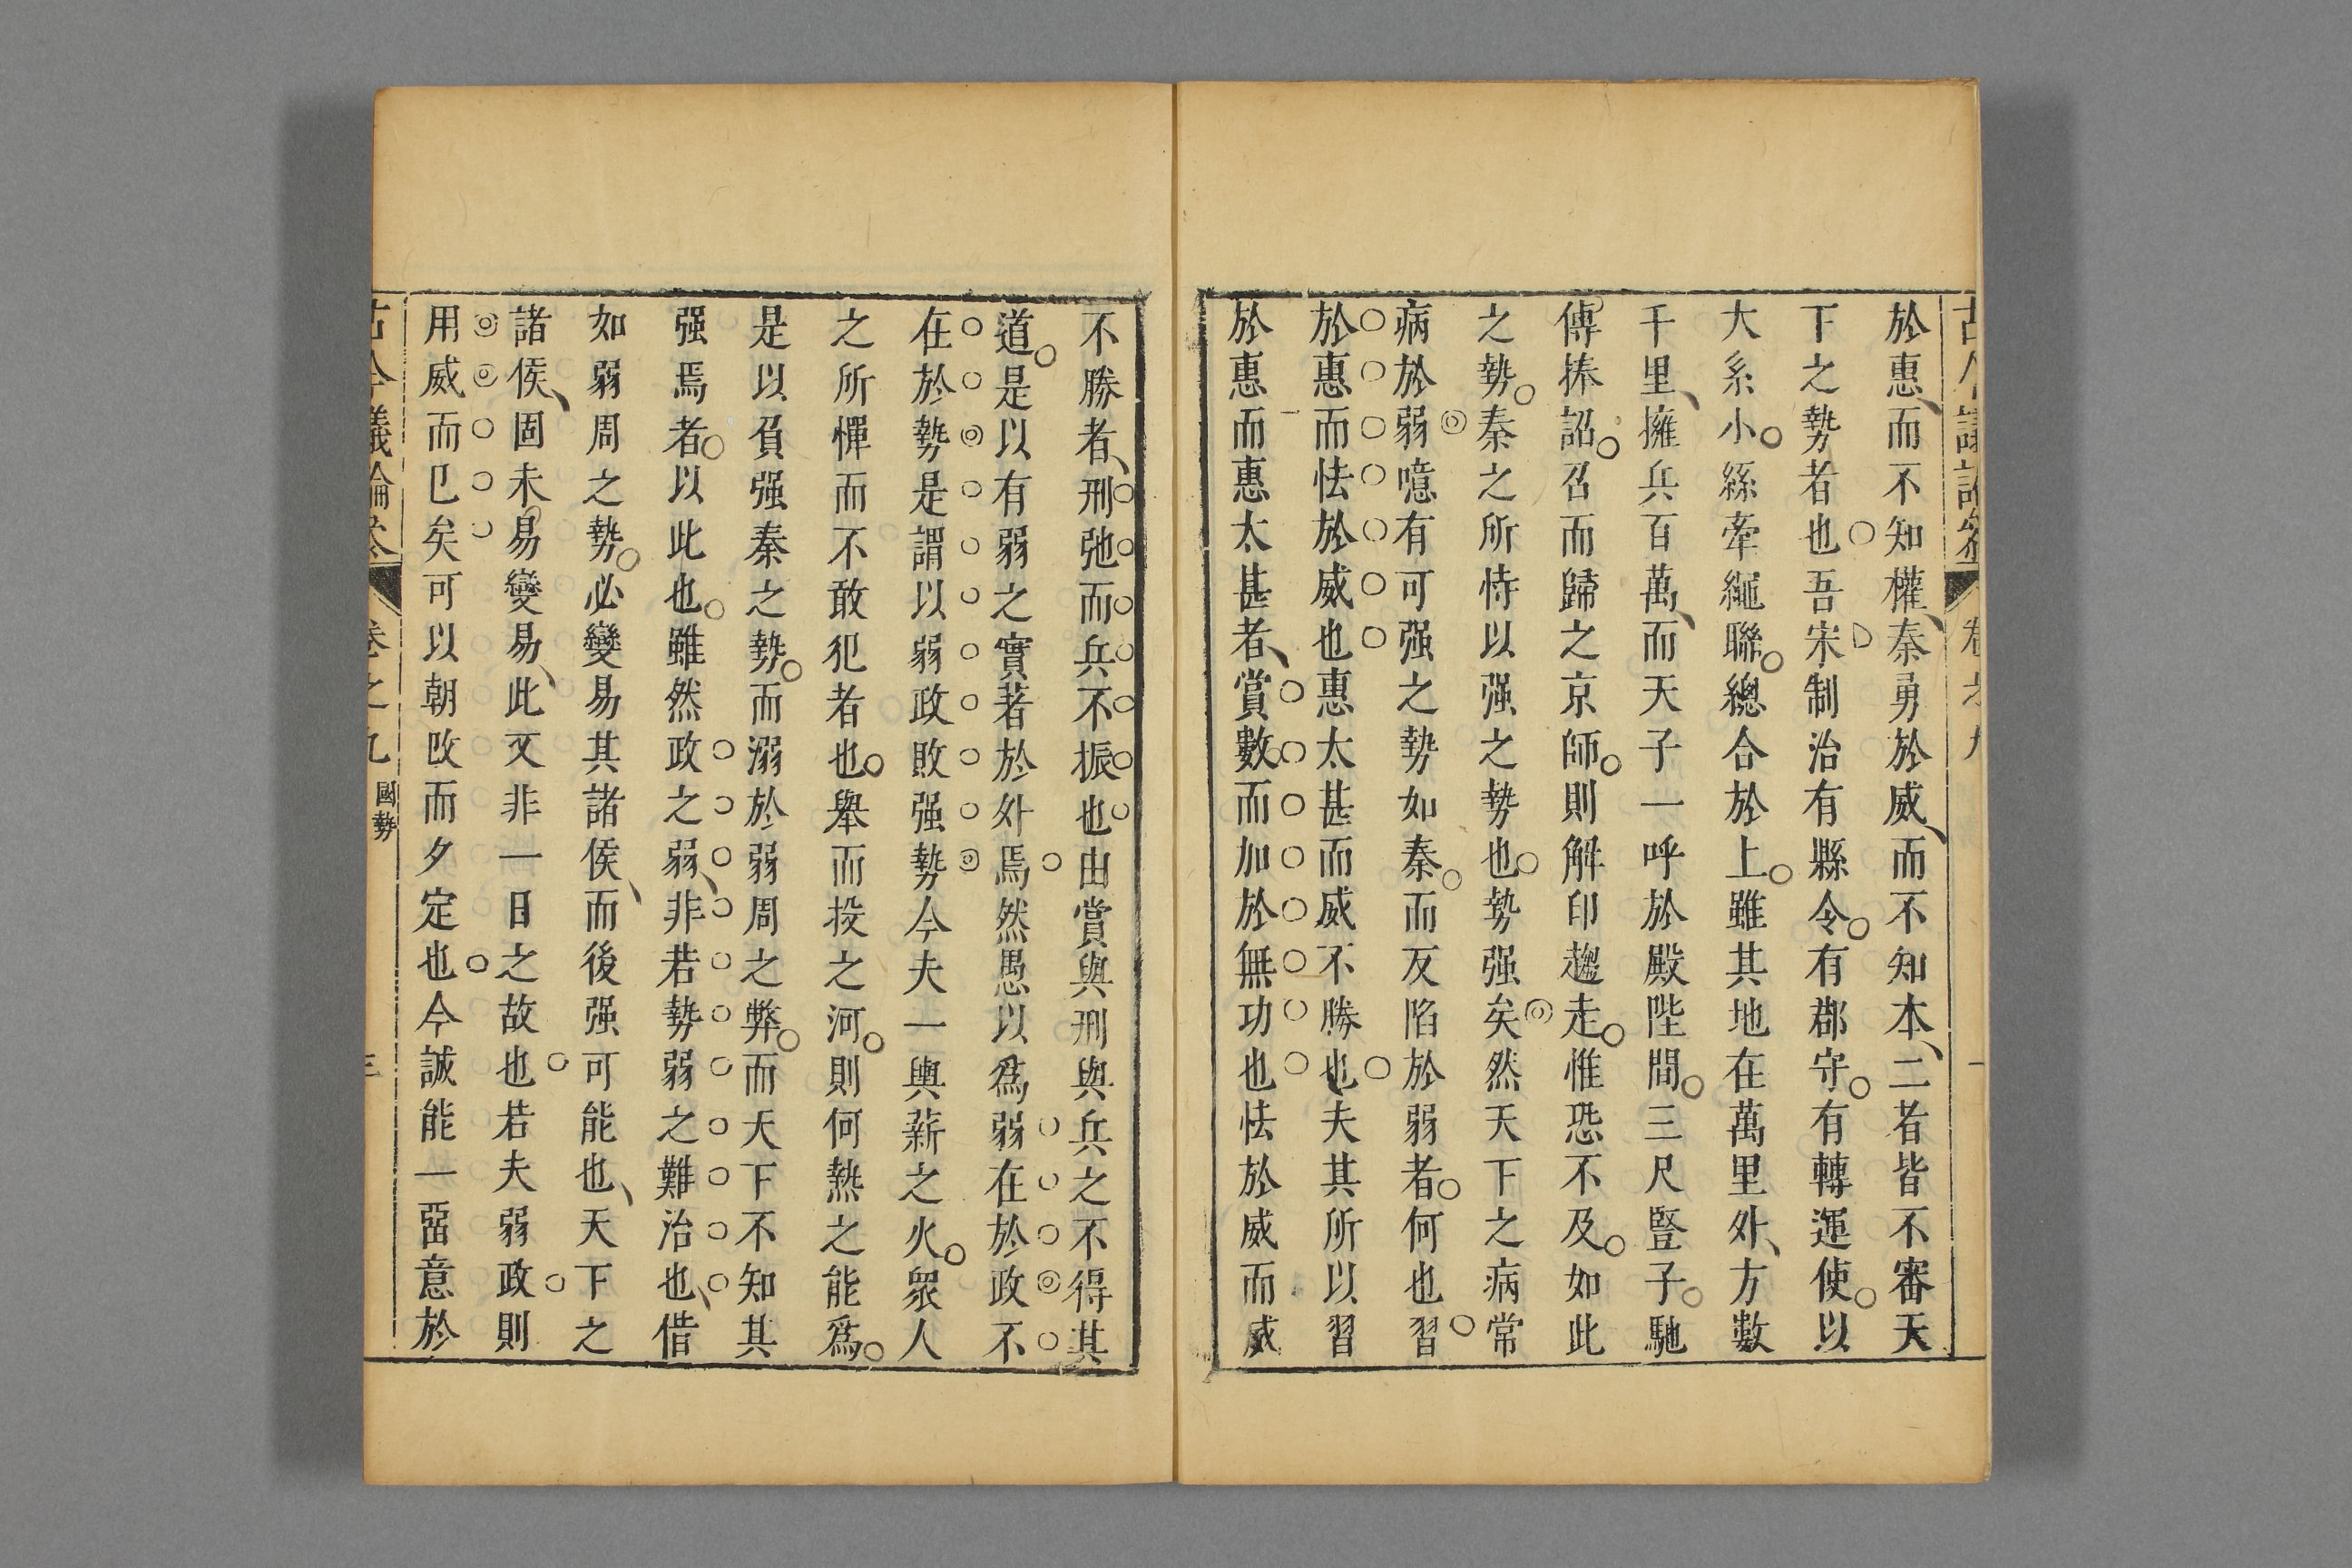 於惠而不知權秦勇於威而不知本二者皆不審天
下之勢者也吾宋制治有縣令有郡守有轉運使以
大系小絲牽繩聯總合於上雖其地在萬里外方數
千里擁兵百萬而天子一呼於殿陛間三尺豎子馳
傳捧詔召而歸之京師則解印趨走惟恐不及如此
之勢秦之所恃以强之勢也勢强矣然天下之病常
病於弱噫有可强之勢如秦而反陷於弱者何也習
於惠而怯於威也惠太甚而威不勝也夫其所以習
於惠而惠太甚者賞數而加於無功也怯於威而威
不勝者刑弛而兵不振也由賞與刑與兵之不得其
道是以有弱之實著於外焉然愚以爲弱在於政不
在於勢是謂以弱政敗强勢今夫一輿薪之火衆人
之所憚而不敢犯者也舉而投之河則何熱之能爲
是以負强秦之勢而溺於弱周之弊而天下不知其
强焉者以此也雖然政之弱非若勢弱之難治也借
如弱周之勢必變易其諸侯而後强可能也天下之
諸侯固未易變易此又非一日之故也若夫弱政則
用威而已矣可以朝改而夕定也今誠能一畱意於
古今議論參 卷之九 國勢